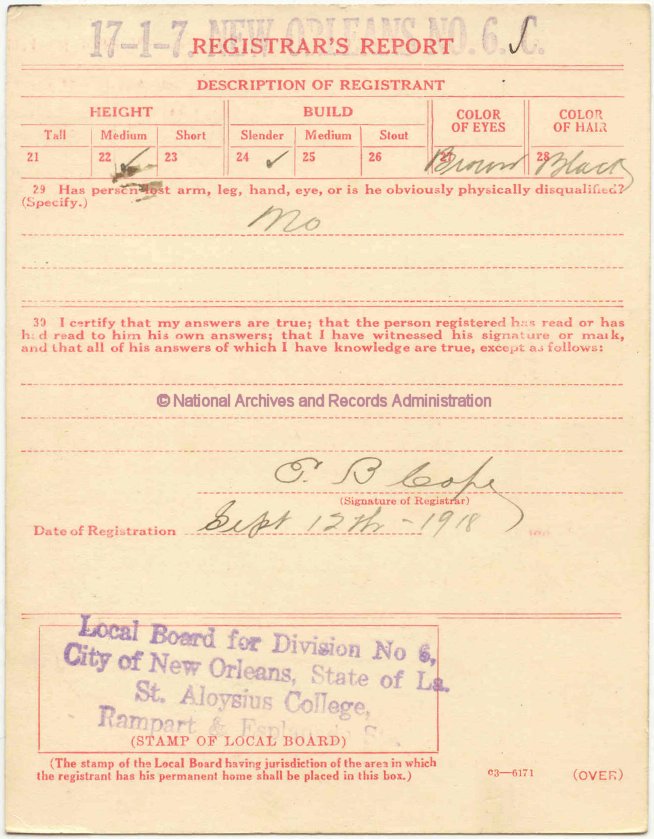 17-1-7. NEW ORLEANS NO. 6. C.
REGISTRAR'S REPORT
DESCRIPTION OF REGISTRANT
HEIGHT BUILD COLOR OF EYES COLOR OF HAIR
Tall Medium Short Slender Medium Stout
21 22 ✓ 23 24 ✓ 25 26 27 Brown 28 Black
29 Has person lost arm, leg, hand, eye, or is he obviously physically disqualified?
(Specify.)
No
30 I certify that my answers are true; that the person registered has read or has
had read to him his own answers; that I have witnessed his signature or mark,
and that all of his answers of which I have knowledge are true, except as follows:
© National Archives and Records Administration
B Cope
(Signature of Registrar)
Date of Registration Sept 12th - 1918
Local Board for Division No 6,
City of New Orleans, State of La.
St. Aloysius College,
Rampart &
(STAMP OF LOCAL BOARD)
(The stamp of the Local Board having jurisdiction of the area in which
the registrant has his permanent home shall be placed in this box.)
03—6171 (OVER)